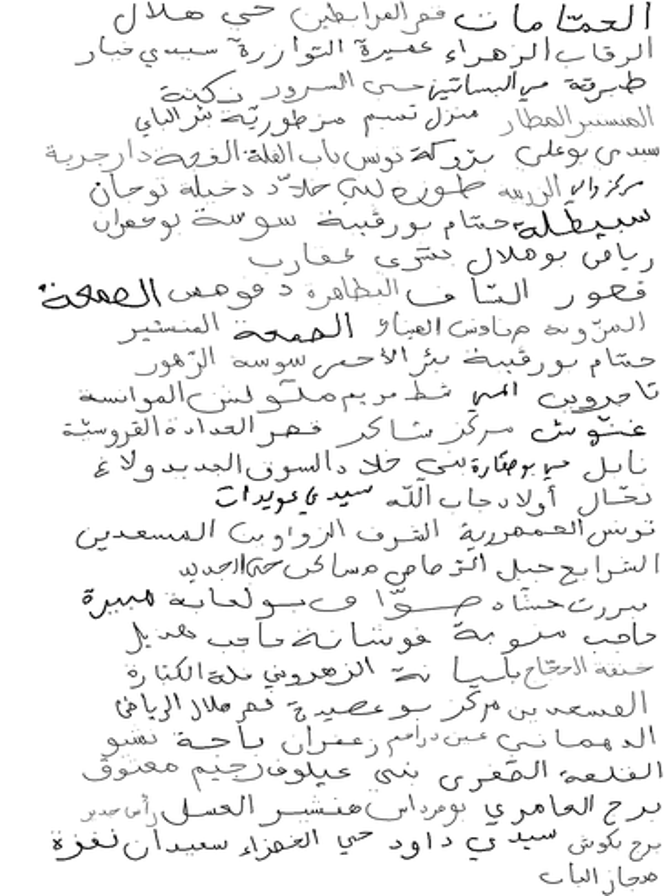 الحمّامات قصر المرابطين حي هلال
الرقاب الزهراء عميرة التوازرة سيدي خيار
طبرقة حي البساتين حي السرور زكنة
المنستير المطار منزل تميم مزطوريّة بئر الباي
سيدي بوعلي بزوكة تونس باب الفلة الفحة دار جربة
مركز والي طوزه بني خلاّد دخيلة توجان
سبيطلة حشّام بورقيبة سوسة بوجعفران
رياض بوهلال بنزرت عقارب
قصور الساف النظاهرة د فوحص الصمعة
المرّوبة الجمعة المنستير
حشّام بورقيبة بئر الأحمر سوسة الزّهور
تاجروين شط مريم ملّولش الموانسة
غنّوش مركز شاكر قصر الحدادة القروسيّة
نابل حي بوصفّارة بني خلاد السوق الجديد ولاغ
نحّال أولاد جاب اللّه سيدي عويدات
تونس الجمهورية الشرف الزواوين المسعدين
الشرايع جبل الرّصاص مساكن حي الجديد
بنزرت حشاد صوّاف بولعابة هبيرة
حاجب منوبة فوشانة حاجب هذيل
خنقة الحجّاج باسيانة الزهروني ملة الكنارة
المسعدين مركز بوعصيدة قصر هلال الرياض
الدهماني عين دراهم زعفران باجة نشو
القلعة الصغرى بني غيلوف رجيم معتوق
برج العامري بومرداس هنشير العسل رأس جدير
برج بكوش سيدي داود حي الخضراء سعيدان نفزة
مجاز الباب